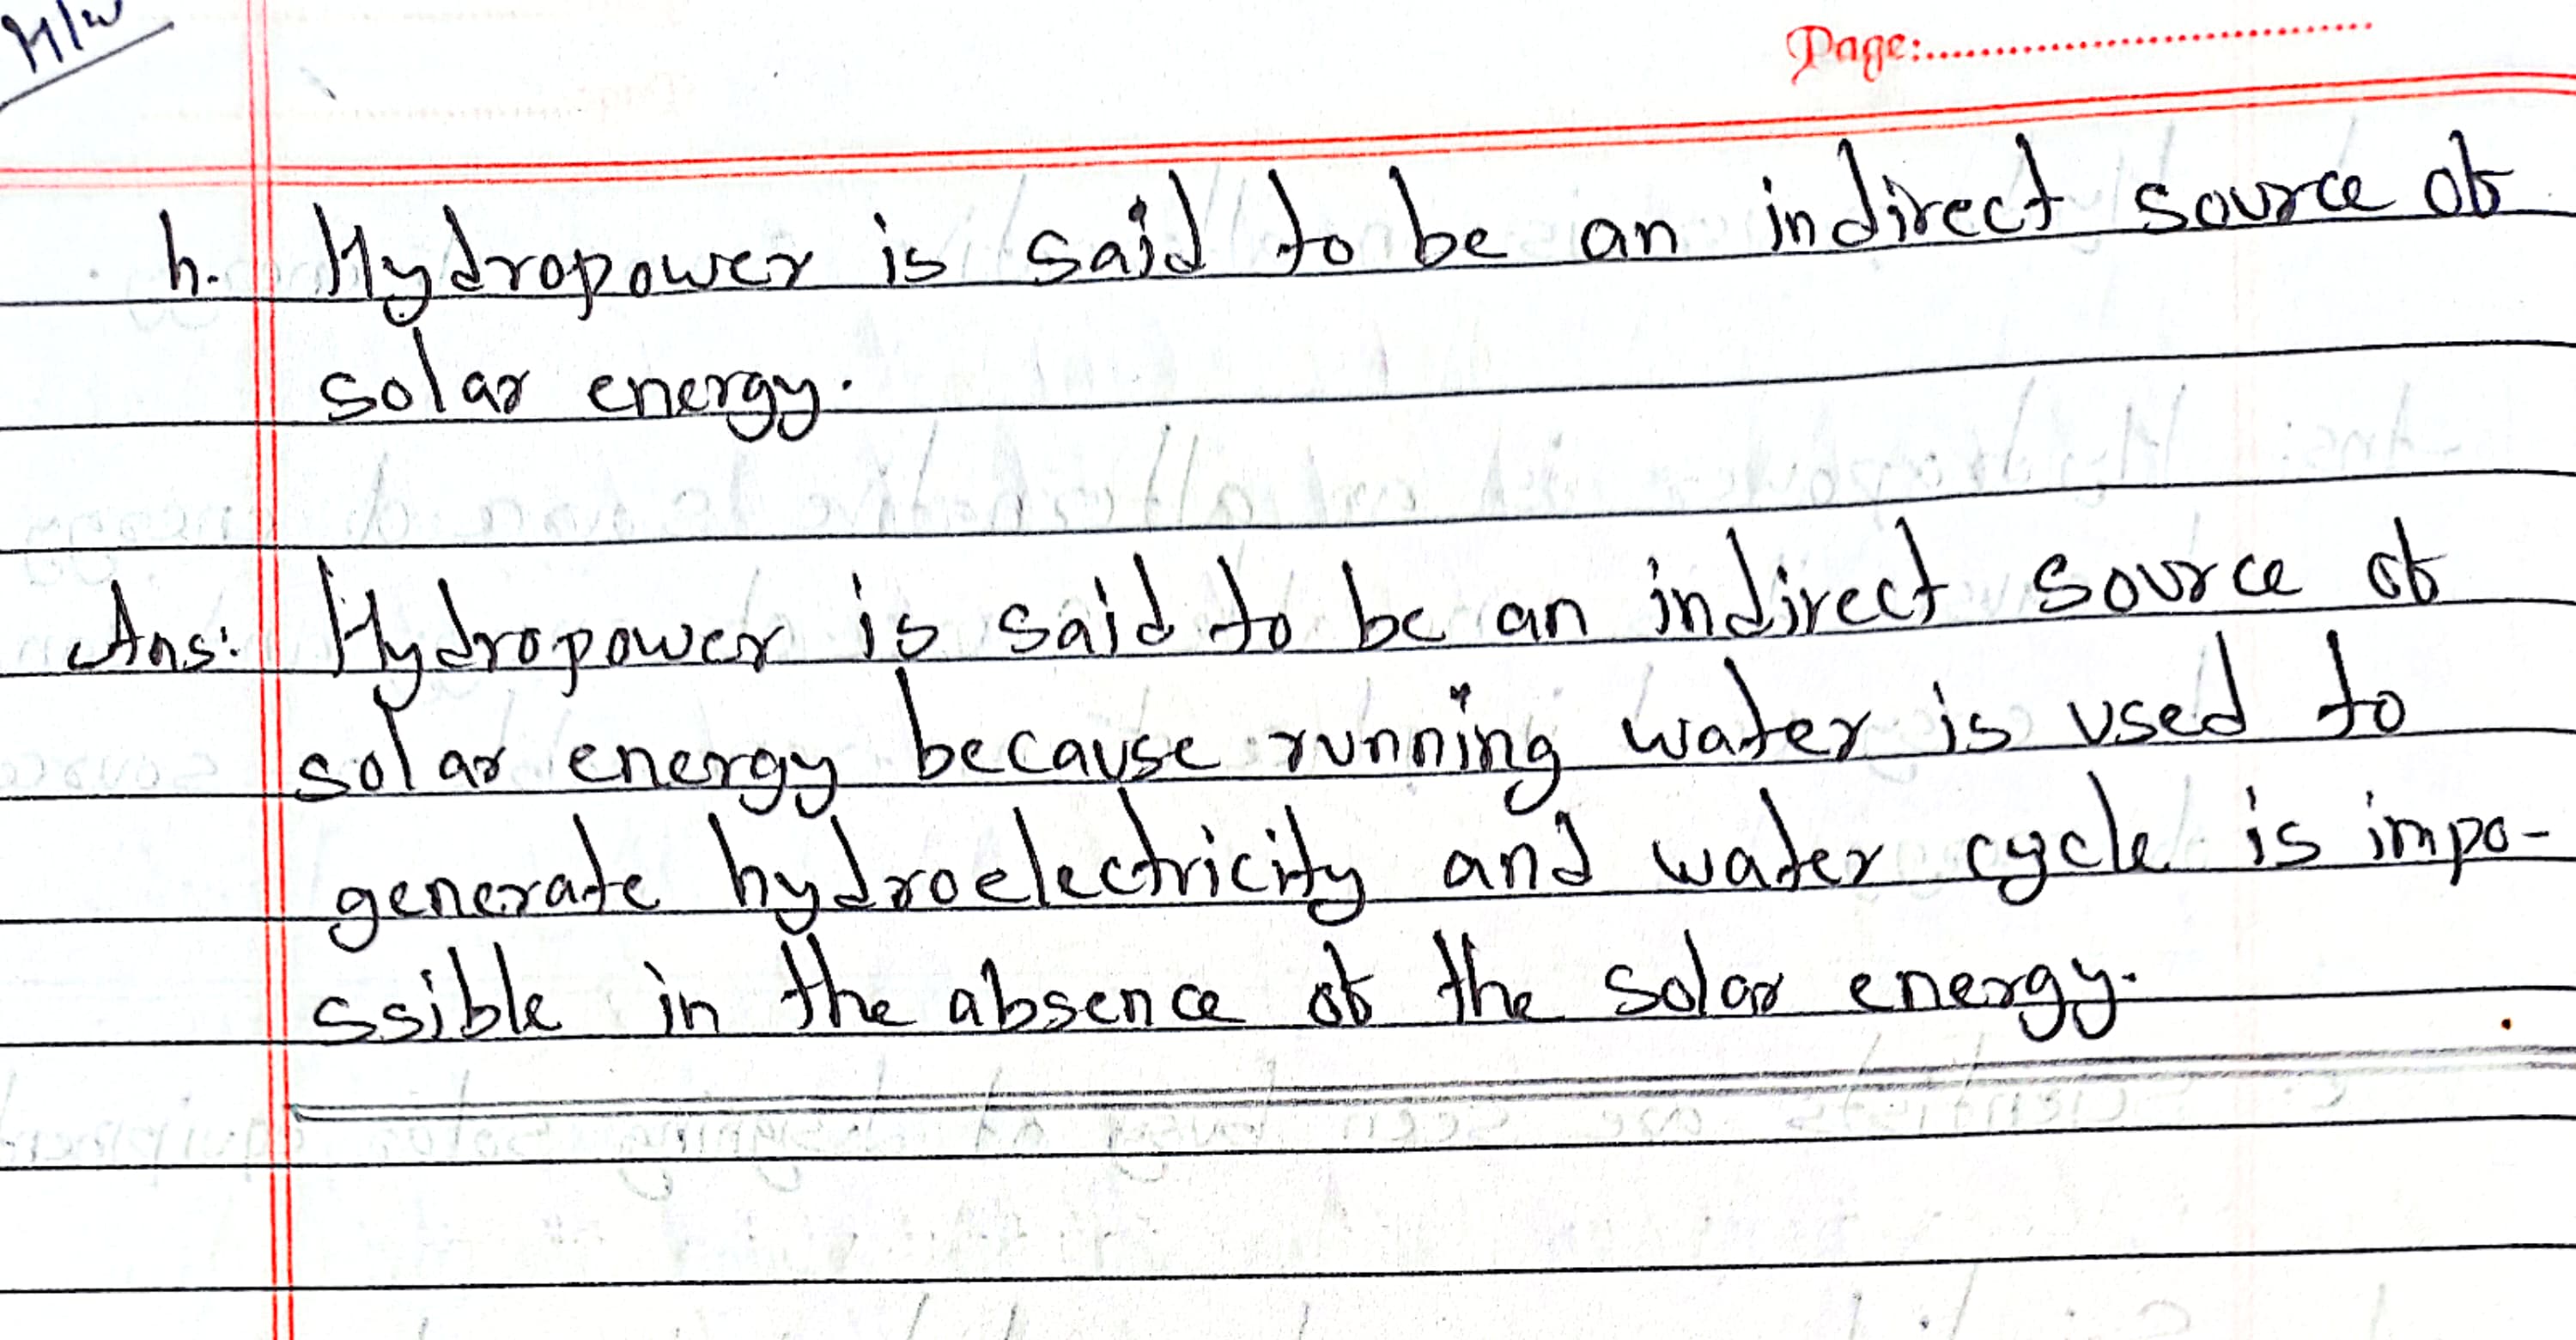 H/W
Page:
h. Hydropower is said to be an indirect source of
solar energy.
Ans: Hydropower is said to be an indirect source of
solar energy because running water is used to
generate hydroelectricity and water cycle is impo-
ssible in the absence of the solar energy.